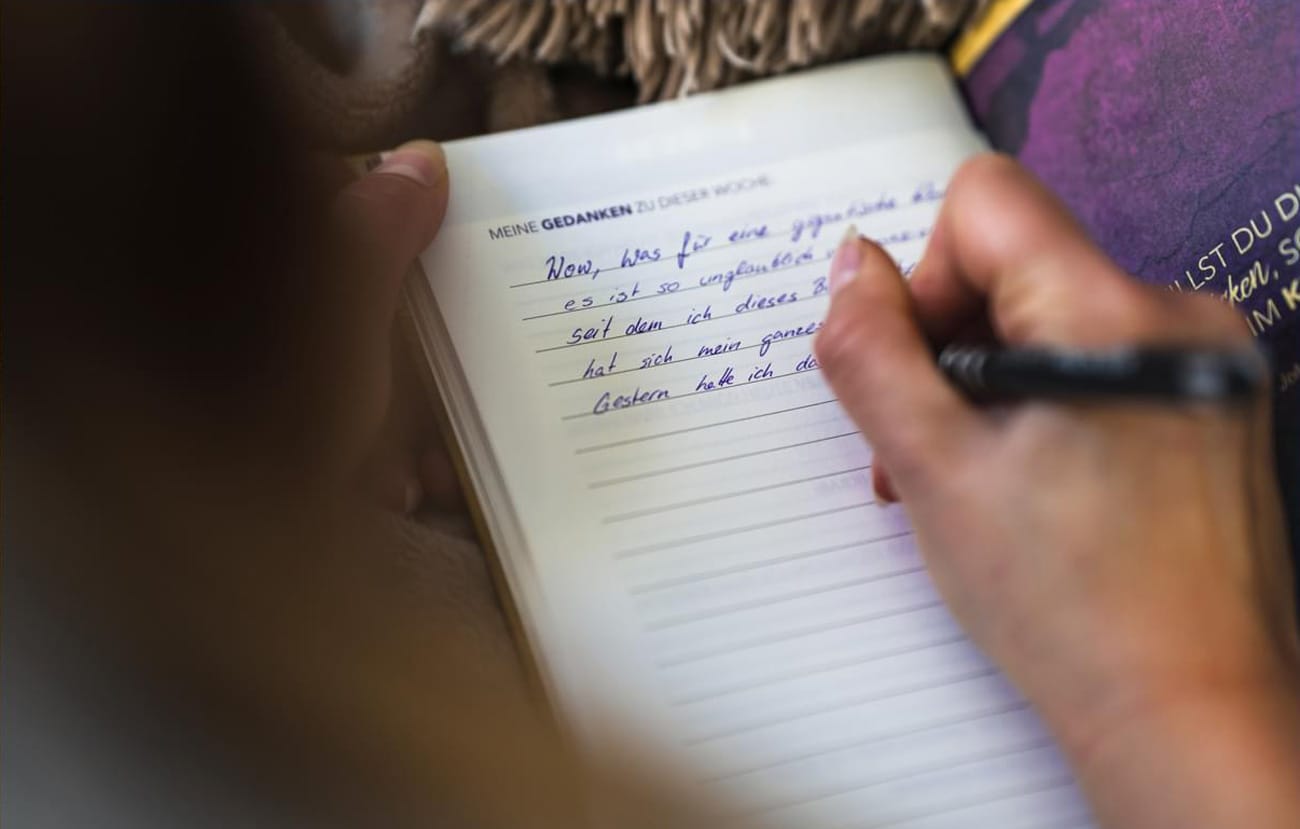 MEINE GEDANKEN ZU DIESER WOCHE
Wow, Was für eine gigantische
es ist so unglaublich
seit dem ich dieses
hat sich mein ganzes
Gestern hatte ich
LLST DU
IM